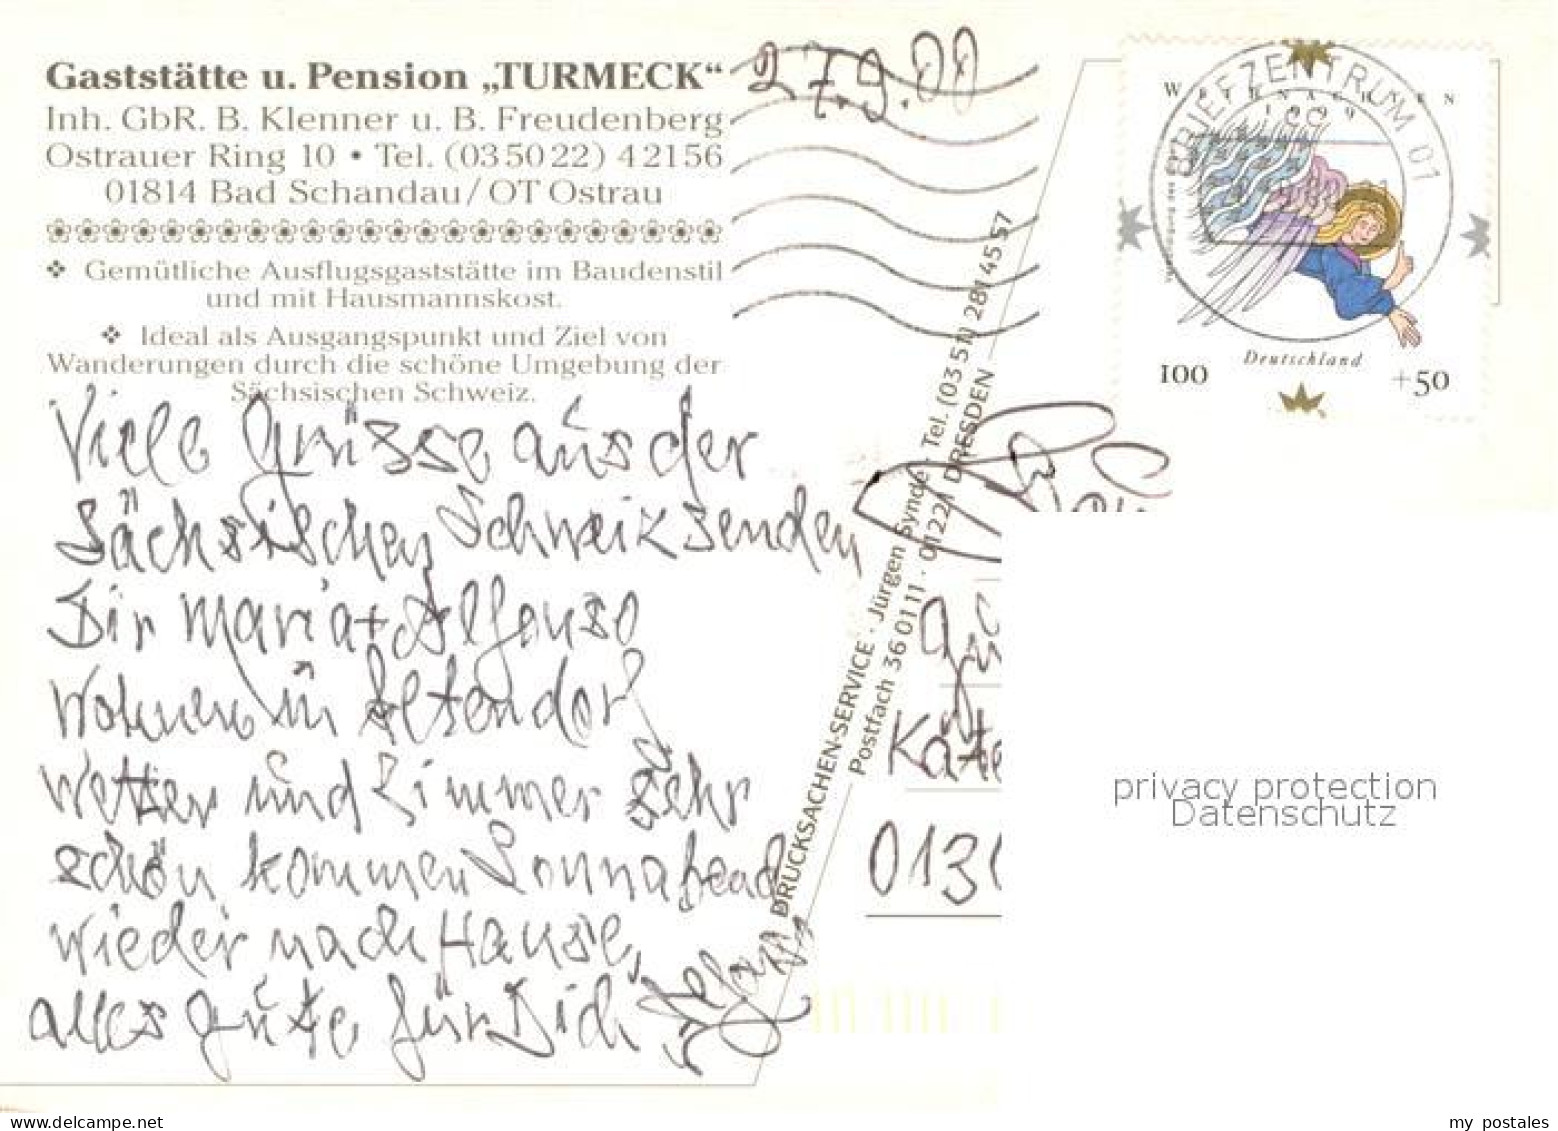 Gaststätte u. Pension „TURMECK“
Inh. GbR. B. Klenner u. B. Freudenberg
Ostrauer Ring 10 • Tel. (035022) 42156
01814 Bad Schandau/OT Ostrau
❖ Gemütliche Ausflugsgaststätte im Baudenstil
und mit Hausmannskost.
❖ Ideal als Ausgangspunkt und Ziel von
Wanderungen durch die schöne Umgebung der
Sächsischen Schweiz.
27.9.00
Viele Grüsse aus der
Sächsischen Schweiz senden
Dir Maria + Alfonso
Wohnen in Altendorf
Wetter und Zimmer sehr
schön kommen Sonnabend
wieder nach Hause,
alles gute für Dich
DRUCKSACHEN-SERVICE · Jürgen Synde · Tel. (03 51) 281 45 57
Postfach 36 01 11 · 01221 DRESDEN
BRIEFZENTRUM 01
WEIHNACHTEN
1999
Deutschland
100 +50
Käte
013
privacy protection
Datenschutz
my postales
www.delcampe.net